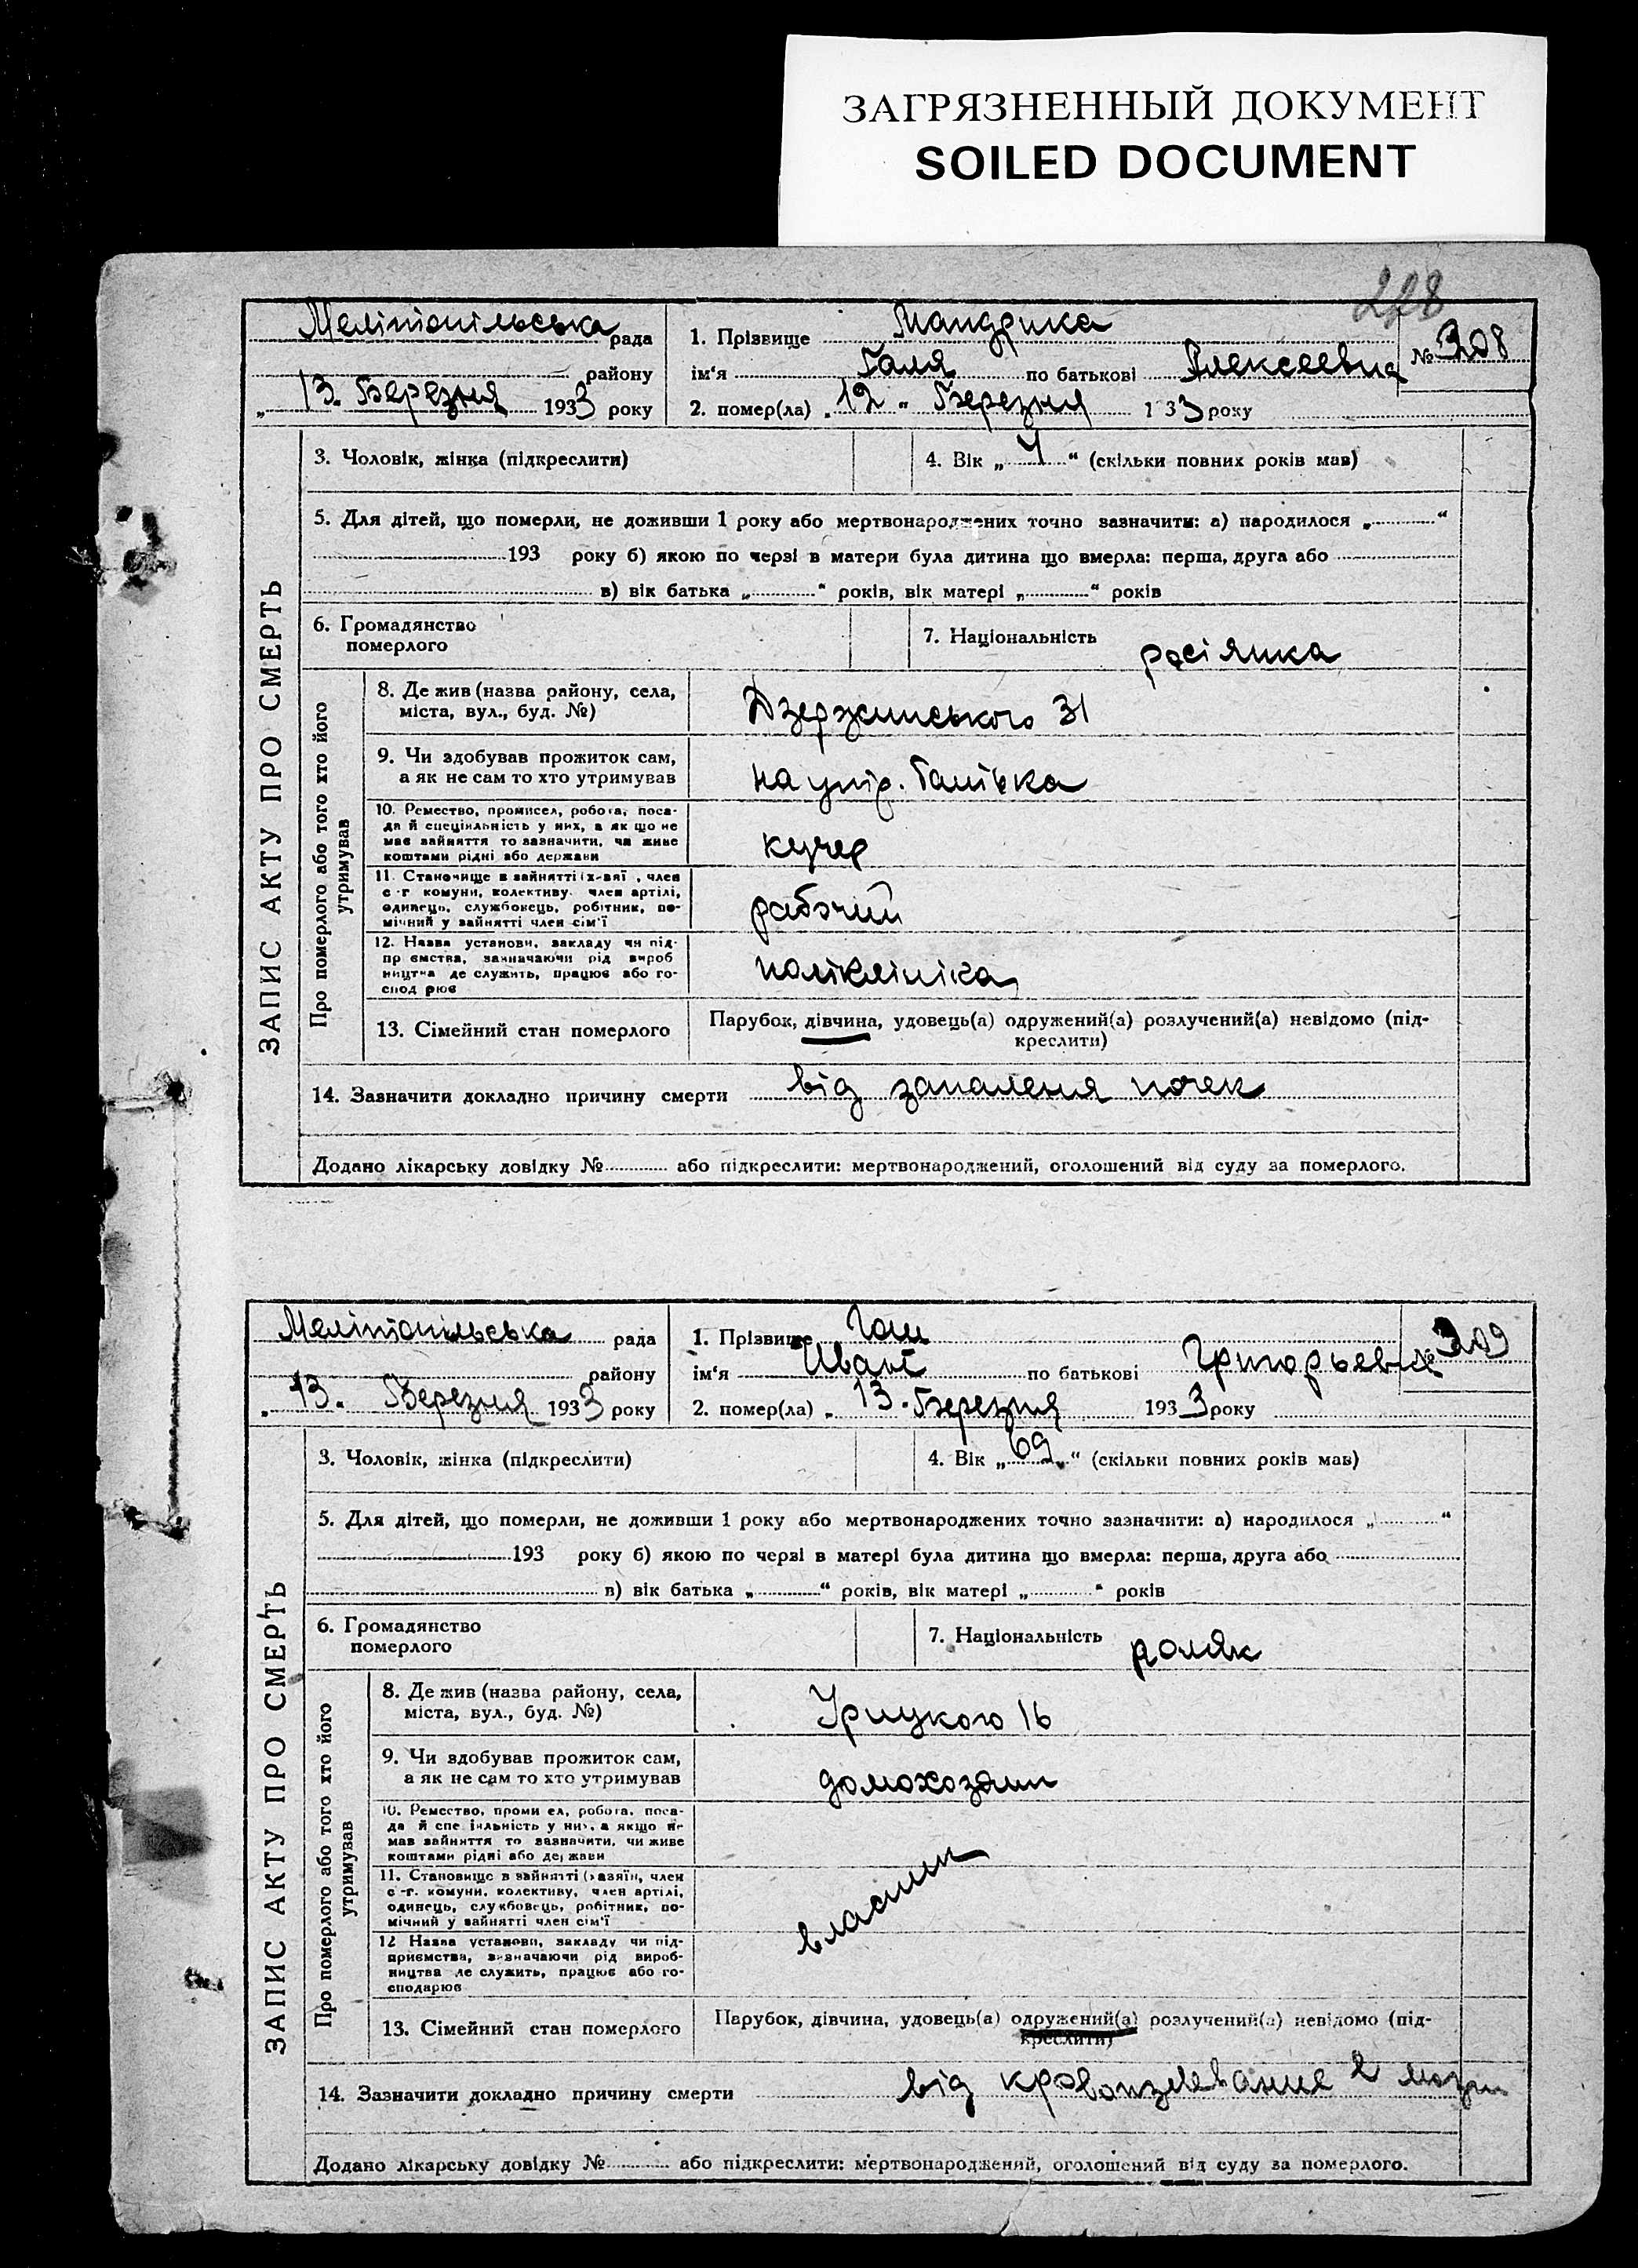 ЗАГРЯЗНЕННЫЙ ДОКУМЕНТ
SOILED DOCUMENT
228
Мелітопільська рада
району
„ 13. Березня 1933 року
1. Прізвище Мандрика
ім'я Галя по батькові Алексеевна
№ 308
2. помер(ла) „ 12 " Березня 1 33 року
ЗАПИС АКТУ ПРО СМЕРТЬ
3. Чоловік, жінка (підкреслити)
4. Вік „ 4 “ (скільки повних років мав)
5. Для дітей, що померли, не доживши 1 року або мертвонароджених точно зазначити: а) народилося „ “
193 року б) якою по черзі в матери була дитина що вмерла: перша, друга або
в) вік батька „ “ років, вік матері „ “ років
6. Громадянство
померлого
7. Національність росіянка
Про померлого або того хто його
утримував
8. Де жив (назва району, села,
міста, вул., буд. №)
Дзержинського 31
9. Чи здобував прожиток сам,
а як не сам то хто утримував
на утр. батька
10. Ремество, промисел, робота, поса-
да й спеціяльність у них, а як що не
має зайняття то зазначити, чи живе
коштами рідні або держави
кучер
11. Становище в зайнятті (х-зяї , член
с-г комуни, колективу. член артілі,
одинець, службовець, робітник, по-
мічний у зайнятті член сім'ї
рабочий
12. Назва установи, закладу чи під-
пр ємства, зазначаючи рід вироб
ництва де служить, працює або го-
спод рює
поліклініка
13. Сімейний стан померлого
Парубок, дівчина, удовець(а) одружений(а) розлучений(а) невідомо (під-
креслити)
14. Зазначити докладно причину смерти від запаленя почек
Додано лікарську довідку № або підкреслити: мертвонароджений, оголошений від суду за померлого.
Мелітопільська рада
району
„ 13. Березня 1933 року
1. Прізвище Гаш
ім'я Иван по батькові Григорьев
№ 309
2. помер(ла) „ 13. Березня 1933 року
ЗАПИС АКТУ ПРО СМЕРТЬ
3. Чоловік, жінка (підкреслити)
4. Вік „ 69 “ (скільки повних років мав)
5. Для дітей, що померли, не доживши 1 року або мертвонароджених точно зазначити: а) народилося „ “
193 року б) якою по черзі в матері була дитина що вмерла: перша, друга або
в) вік батька „ “ років, вік матері „ “ років
6. Громадянство
померлого
7. Національність поляк
Про померлого або того хто його
утримував
8. Де жив (назва району, села,
міста, вул., буд. №)
Урицкого 16
9. Чи здобував прожиток сам,
а як не сам то хто утримував
домохозяин
10. Ремество, проми ел, робота, поса-
да й спе іяльність у них, а якщо не
мав зайняття то зазначити, чи живе
коштами рідні або держави
11. Становище в зайнятті (хазяїн, член
с-г. комуни, колективу, член артілі,
одинець, службовець, робітник, по-
мічний у зайнятті член сім'ї
12 Назва установи, закладу чи під-
приємства, зазначаючи рід вироб-
ництва де служить, працює або го-
сподарює
власник
13. Сімейний стан померлого
Парубок, дівчина, удовець(а) одружений(а) розлучений(а) невідомо (під-
креслити)
14. Зазначити докладно причину смерти від кровоизлевание в мозги
Додано лікарську довідку № або підкреслити: мертвонароджений, оголошений від суду за померлого.